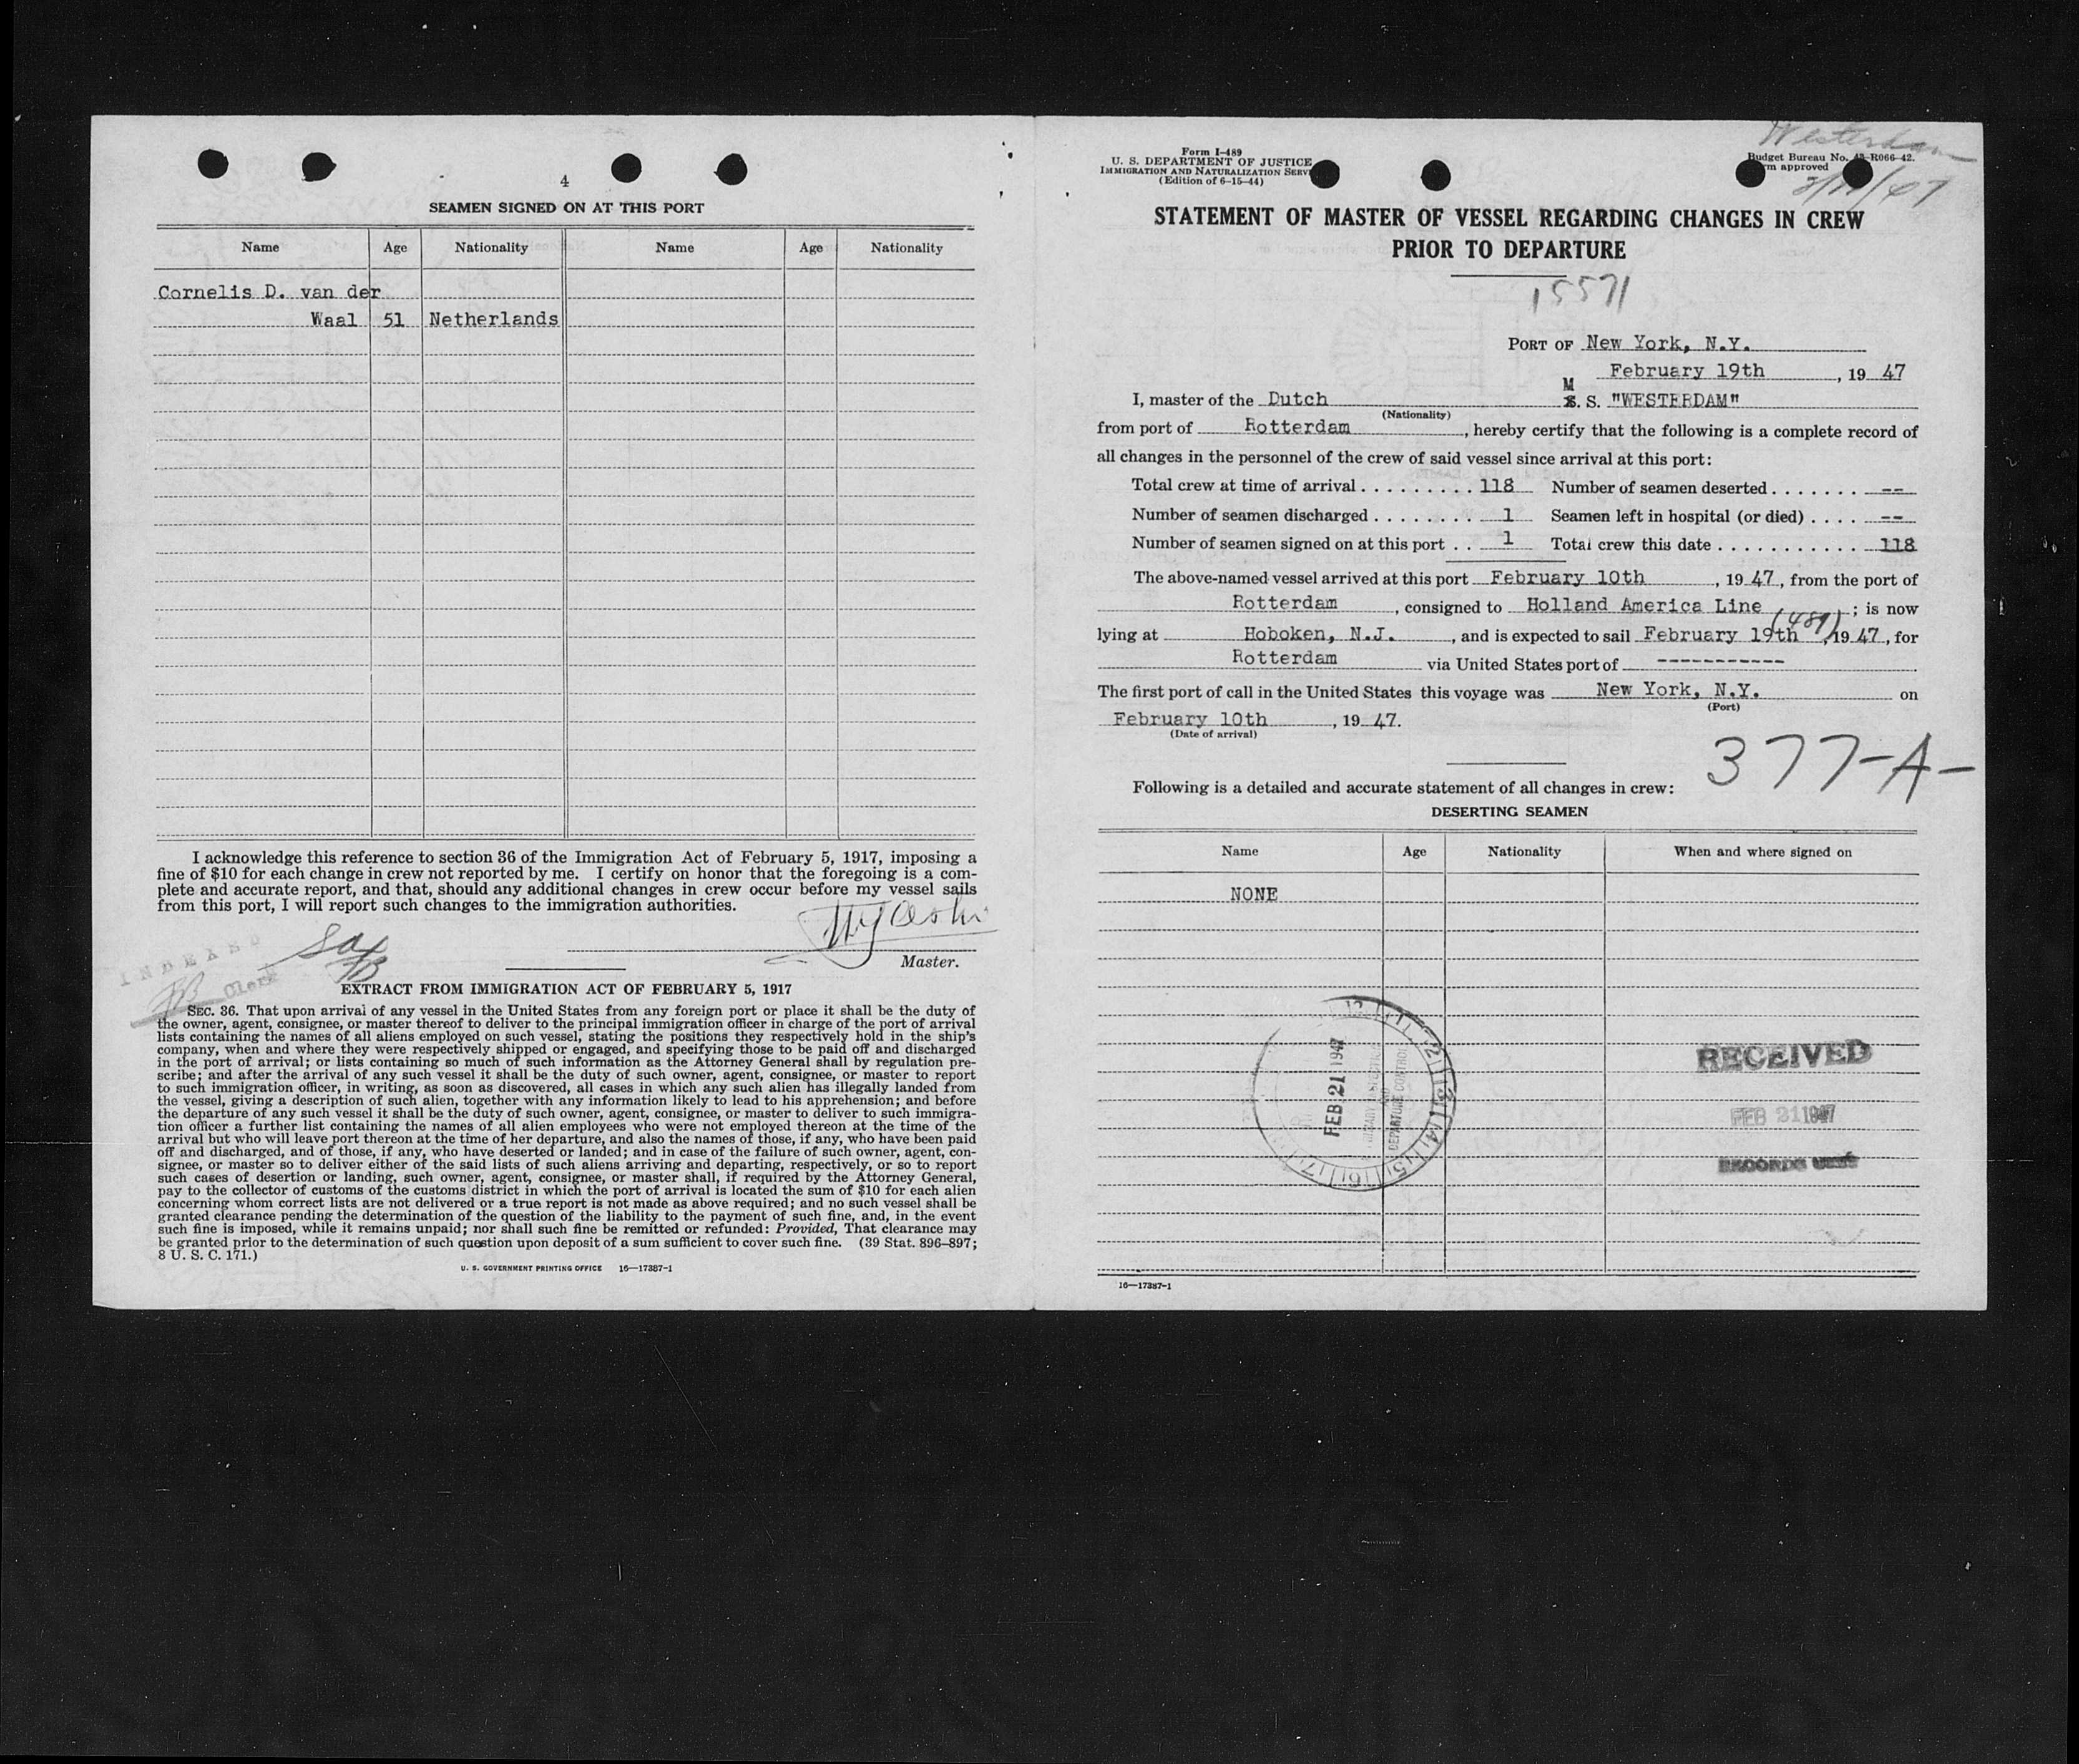 4
SEAMEN SIGNED ON AT THIS PORT
Name Age Nationality Name Age Nationality
Cornelis D. van der
Waal 51 Netherlands
I acknowledge this reference to section 36 of the Immigration Act of February 5, 1917, imposing a
fine of $10 for each change in crew not reported by me. I certify on honor that the foregoing is a com-
plete and accurate report, and that, should any additional changes in crew occur before my vessel sails
from this port, I will report such changes to the immigration authorities.
Master.
INDEXED
Clerk
EXTRACT FROM IMMIGRATION ACT OF FEBRUARY 5, 1917
SEC. 36. That upon arrival of any vessel in the United States from any foreign port or place it shall be the duty of
the owner, agent, consignee, or master thereof to deliver to the principal immigration officer in charge of the port of arrival
lists containing the names of all aliens employed on such vessel, stating the positions they respectively hold in the ship's
company, when and where they were respectively shipped or engaged, and specifying those to be paid off and discharged
in the port of arrival; or lists containing so much of such information as the Attorney General shall by regulation pre-
scribe; and after the arrival of any such vessel it shall be the duty of such owner, agent, consignee, or master to report
to such immigration officer, in writing, as soon as discovered, all cases in which any such alien has illegally landed from
the vessel, giving a description of such alien, together with any information likely to lead to his apprehension; and before
the departure of any such vessel it shall be the duty of such owner, agent, consignee, or master to deliver to such immigra-
tion officer a further list containing the names of all alien employees who were not employed thereon at the time of the
arrival but who will leave port thereon at the time of her departure, and also the names of those, if any, who have been paid
off and discharged, and of those, if any, who have deserted or landed; and in case of the failure of such owner, agent, con-
signee, or master so to deliver either of the said lists of such aliens arriving and departing, respectively, or so to report
such cases of desertion or landing, such owner, agent, consignee, or master shall, if required by the Attorney General,
pay to the collector of customs of the customs district in which the port of arrival is located the sum of $10 for each alien
concerning whom correct lists are not delivered or a true report is not made as above required; and no such vessel shall be
granted clearance pending the determination of the question of the liability to the payment of such fine, and, in the event
such fine is imposed, while it remains unpaid; nor shall such fine be remitted or refunded: Provided, That clearance may
be granted prior to the determination of such question upon deposit of a sum sufficient to cover such fine. (39 Stat. 896–897;
8 U. S. C. 171.)
U. S. GOVERNMENT PRINTING OFFICE 16—17387-1
Westerdam
Form I-489
U. S. DEPARTMENT OF JUSTICE
IMMIGRATION AND NATURALIZATION SERVI
(Edition of 6-15-44)
Budget Bureau No. 43-R066-42.
rm approved
STATEMENT OF MASTER OF VESSEL REGARDING CHANGES IN CREW
PRIOR TO DEPARTURE
15571
PORT OF New York, N.Y.
February 19th, 19 47
I, master of the Dutch M S. S. "WESTERDAM"
(Nationality)
from port of Rotterdam, hereby certify that the following is a complete record of
all changes in the personnel of the crew of said vessel since arrival at this port:
Total crew at time of arrival . . . . . . . . . 118 Number of seamen deserted . . . . . . . --
Number of seamen discharged . . . . . . . . 1 Seamen left in hospital (or died) . . . . --
Number of seamen signed on at this port . . 1 Total crew this date . . . . . . . . . . . 118
The above-named vessel arrived at this port February 10th, 19 47, from the port of
Rotterdam, consigned to Holland America Line; is now
(489)
lying at Hoboken, N.J., and is expected to sail February 19th, 19 47, for
Rotterdam via United States port of -----------
The first port of call in the United States this voyage was New York, N.Y. on
(Port)
February 10th, 19 47.
(Date of arrival)
377-A-
Following is a detailed and accurate statement of all changes in crew:
DESERTING SEAMEN
Name Age Nationality When and where signed on
NONE
FEB 21 1947
DEPARTURE CONTROL
RECEIVED
FEB 21 1947
RECORDS
16—17387-1